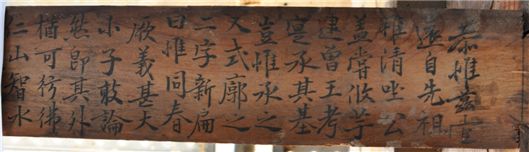 恭惟玆堂
遠自先祖
雅清坐公
盖嘗攸芋
逮曽王考
寔承其基
豈惟承之
又式廓之
二字新扁
曰惟同春
厥義甚大
小子敢論
然即其外
猶可彷彿
仁山智水